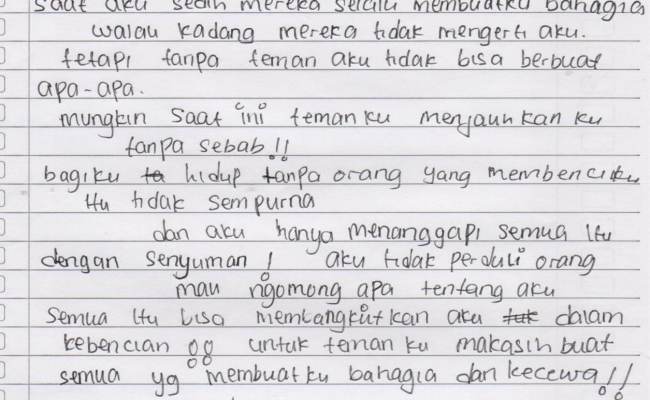 saat aku sedih mereka selalu membuatku bahagia
walau kadang mereka tidak mengerti aku.
tetapi tanpa teman aku tidak bisa berbuat
apa-apa.
mungkin saat ini temanku menjauhkan ku
tanpa sebab!!
bagiku ta hidup tanpa orang yang membenciku
itu tidak sempurna
dan aku hanya menanggapi semua itu
dengan senyuman! aku tidak perduli orang
mau ngomong apa tentang aku
semua itu bisa membangkitkan aku tuk dalam
kebencian untuk teman ku makasih buat
semua yg membuatku bahagia dan kecewa!!